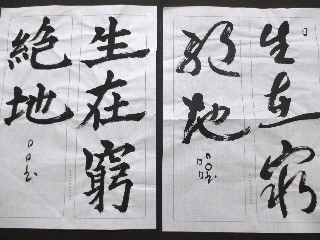 生在窮
絶地
生在窮
絶地